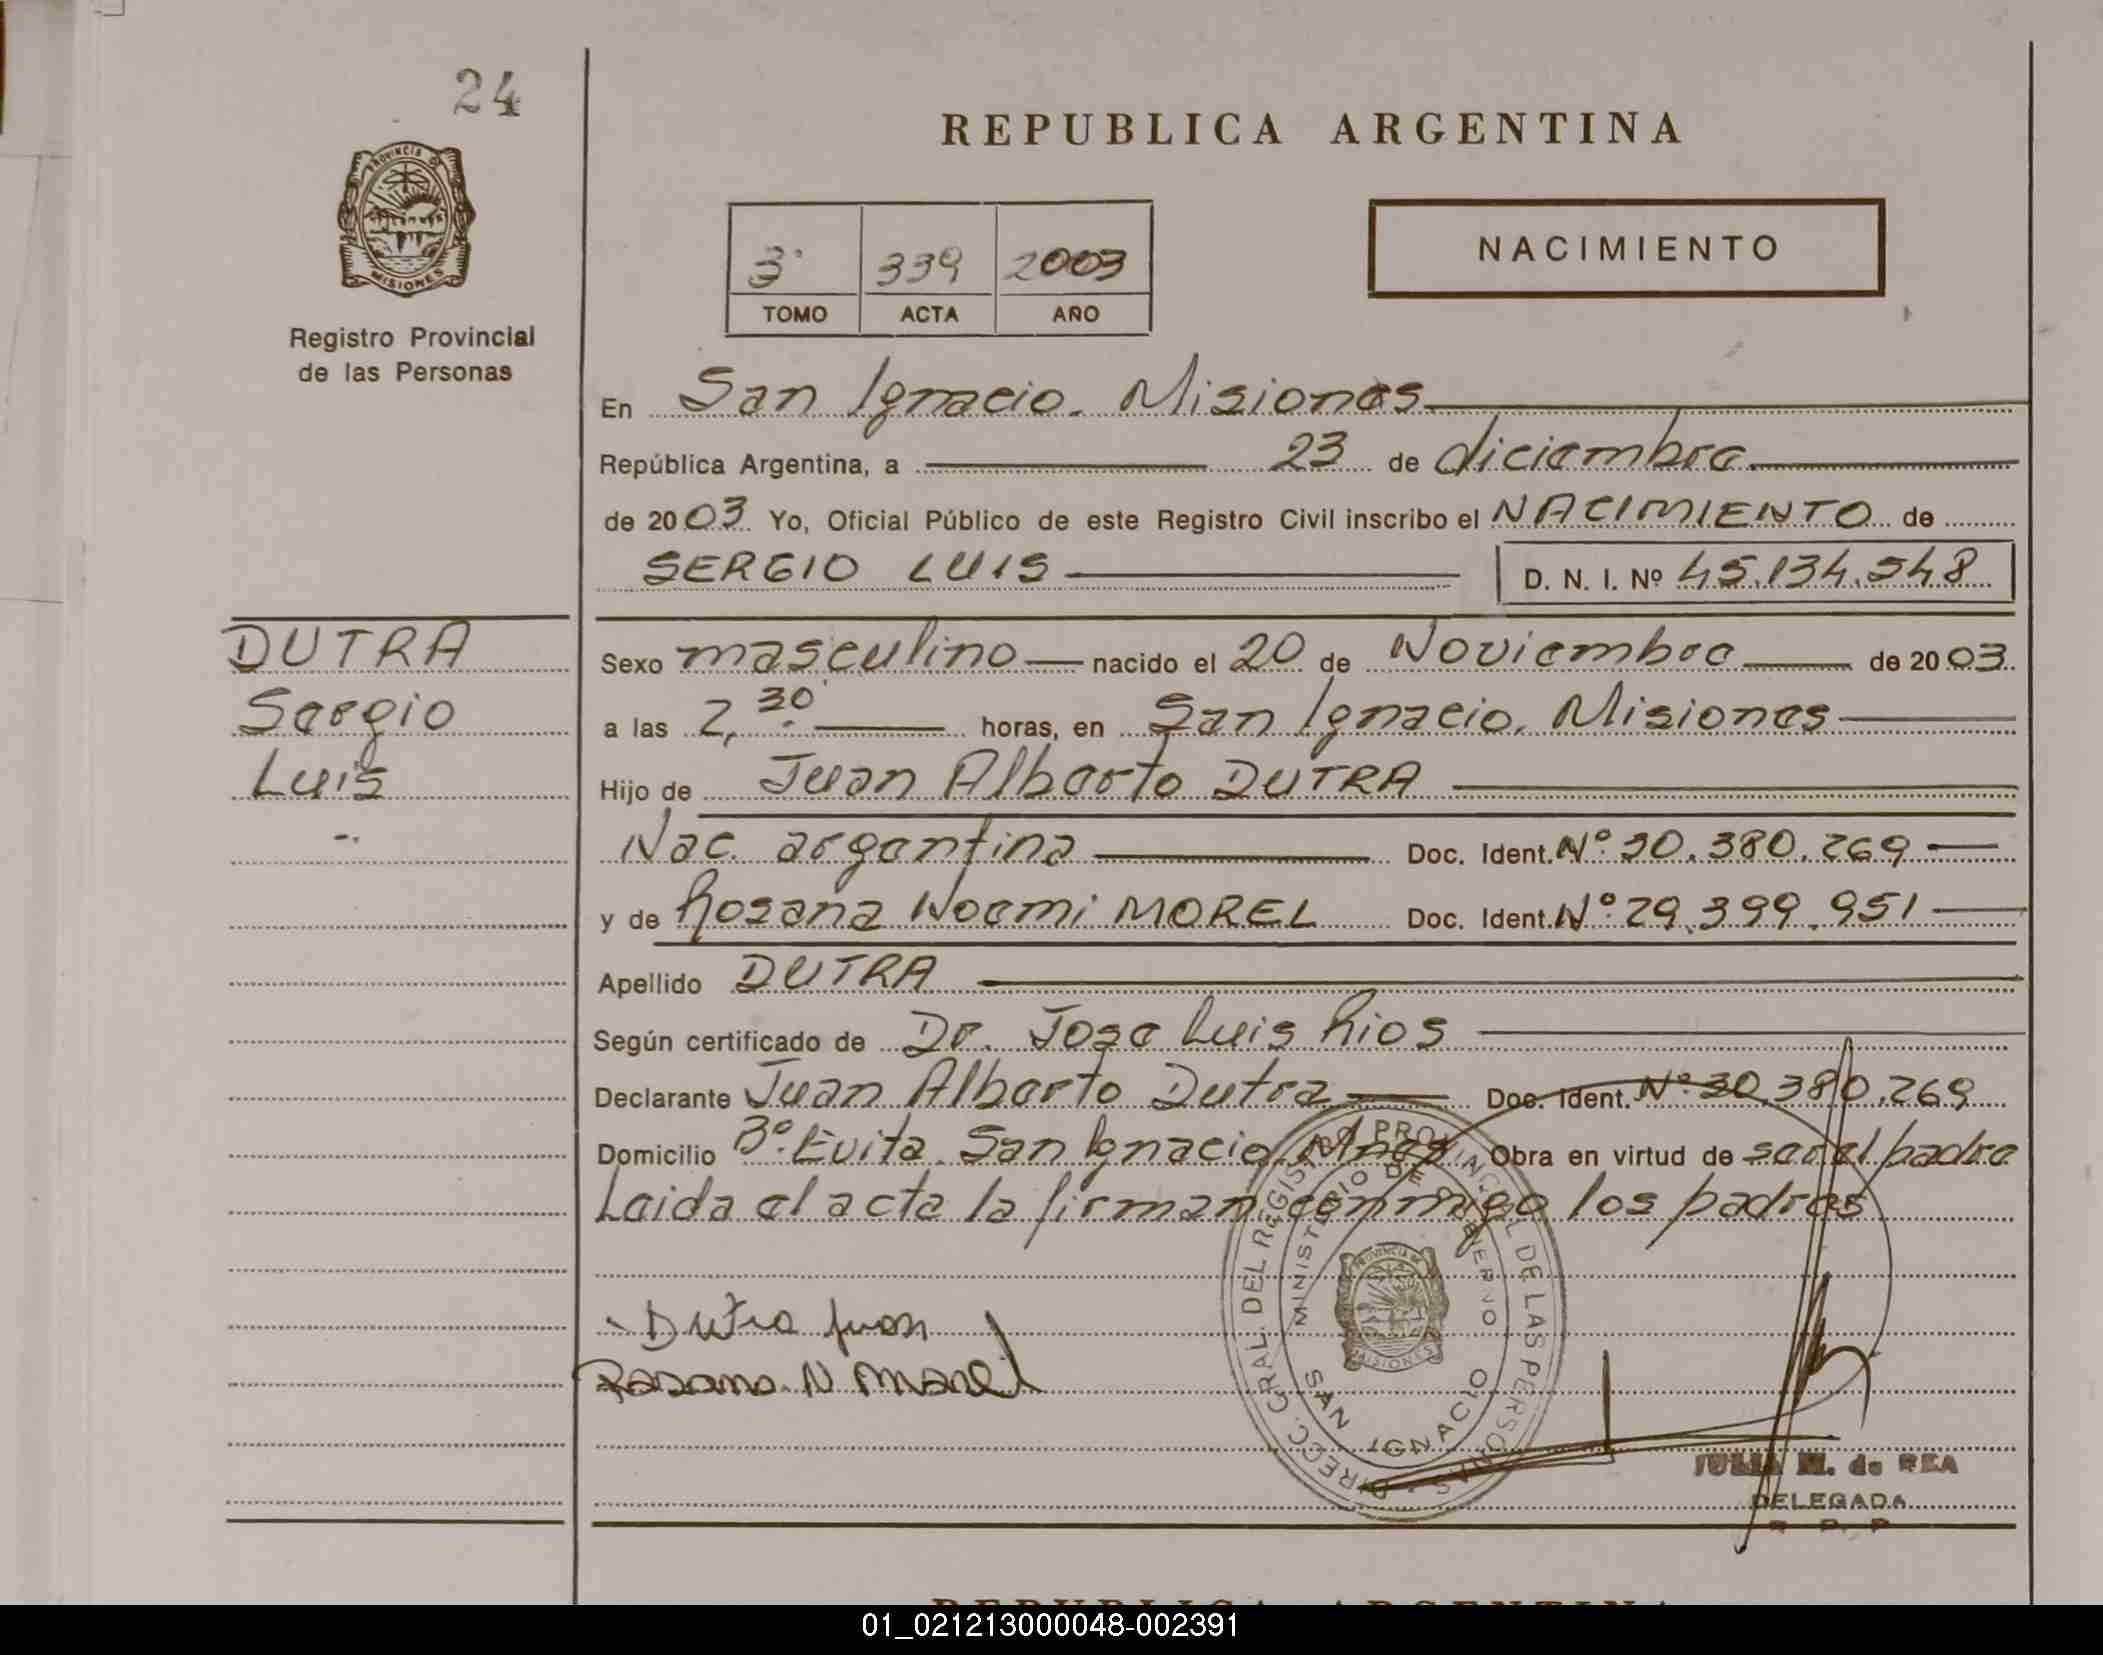 24
PROVINCIA DE
MISIONES
Registro Provincial
de las Personas
REPUBLICA ARGENTINA
3° 339 2003
TOMO ACTA AÑO
NACIMIENTO
En San Ignacio. Misiones
República Argentina, a 23 de diciembre
de 2003 Yo, Oficial Público de este Registro Civil inscribo el NACIMIENTO de
SERGIO LUIS D. N. I. Nº 45.134.548
DUTRA
Sergio
Luis
Sexo masculino nacido el 20 de Noviembre de 2003
a las 2,30 horas, en San Ignacio, Misiones
Hijo de Juan Alberto DUTRA
Nac. argentina Doc. Ident. Nº 30.380.269
y de Rosana Noemi MOREL Doc. Ident. Nº 29.399.951
Apellido DUTRA
Según certificado de Dr. Jose Luis Rios
Declarante Juan Alberto Dutra Doc. Ident. Nº 30.380.269
Domicilio Bº. Evita San Ignacio Mnes Obra en virtud de ser el padre
Leida el acta la firman conmigo los padres
Dutra Juan
Rosana N Morel
DIRECC. GRAL. DEL REGISTRO PROVINCIAL DE LAS PERSONAS
MINISTERIO DE GOBIERNO
PROVINCIA DE
MISIONES
SAN IGNACIO
JULIA M. de REA
DELEGADA
R. P. P.
REPUBLICA ARGENTINA
01_021213000048-002391